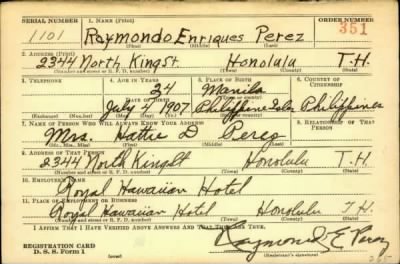 SERIAL NUMBER 1. NAME (Print) ORDER NUMBER
1101 Raymondo Enriques Perez 351
(First) (Middle) (Last)
2. ADDRESS (Print)
2344 North King St. Honolulu T.H.
(Number and street or R. F. D. number) (Town) (County) (State)
3. TELEPHONE 4. AGE IN YEARS 5. PLACE OF BIRTH 6. COUNTRY OF CITIZENSHIP
34 Manila
DATE OF BIRTH
July 4 1907 Philippine Isles Philippines
(Exchange) (No.) (Mo.) (Day) (Yr.) (Town or county) (State or country)
7. NAME OF PERSON WHO WILL ALWAYS KNOW YOUR ADDRESS 8. RELATIONSHIP OF THAT PERSON
Mrs. Hattie D Perez
(Mr., Mrs., Miss) (First) (Middle) (Last)
9. ADDRESS OF THAT PERSON
2344 North King St Honolulu T.H.
(Number and street or R. F. D. number) (Town) (County) (State)
10. EMPLOYER'S NAME
Royal Hawaiian Hotel
11. PLACE OF EMPLOYMENT OR BUSINESS
Royal Hawaiian Hotel Honolulu T.H.
(Number and street or R. F. D. number) (Town) (County) (State)
I AFFIRM THAT I HAVE VERIFIED ABOVE ANSWERS AND THAT THEY ARE TRUE.
REGISTRATION CARD
D. S. S. Form 1
Raymond E Perez
(Registrant's signature)
265